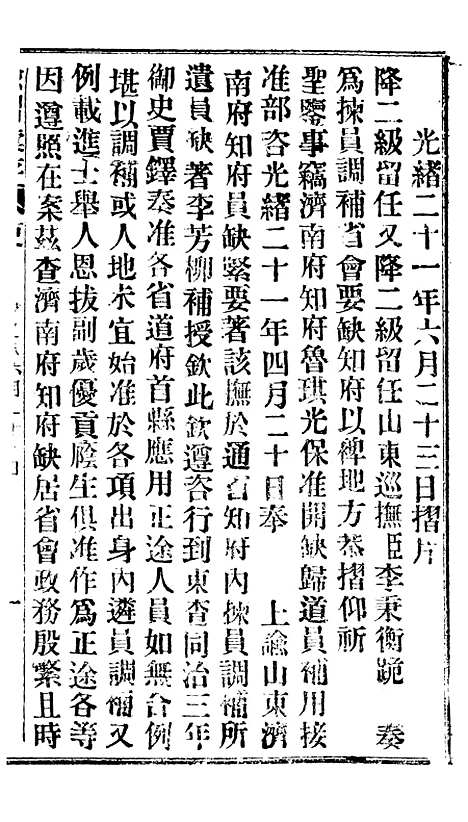 光緒二十一年六月二十三日摺片
降二級留任又降二級留任山東巡撫臣李秉衡跪 奏
爲揀員調補省會要缺知府以裨地方恭摺仰祈
聖鑒事竊濟南府知府魯琪光保准開缺歸道員補用接
准部咨光緒二十一年四月二十日奉 上諭山東濟
南府知府員缺緊要著該撫於通省知府內揀員調補所
遺員缺著李芳柳補授欽此欽遵咨行到東查同治三年
御史賈鐸奏准各省道府首縣應用正途人員如無合例
堪以調補或人地未宜始准於各項出身內遴員調補又
例載進士舉人恩拔副歲優貢廕生俱准作爲正途各等
因遵照在案茲查濟南府知府缺居省會政務殷繁且時